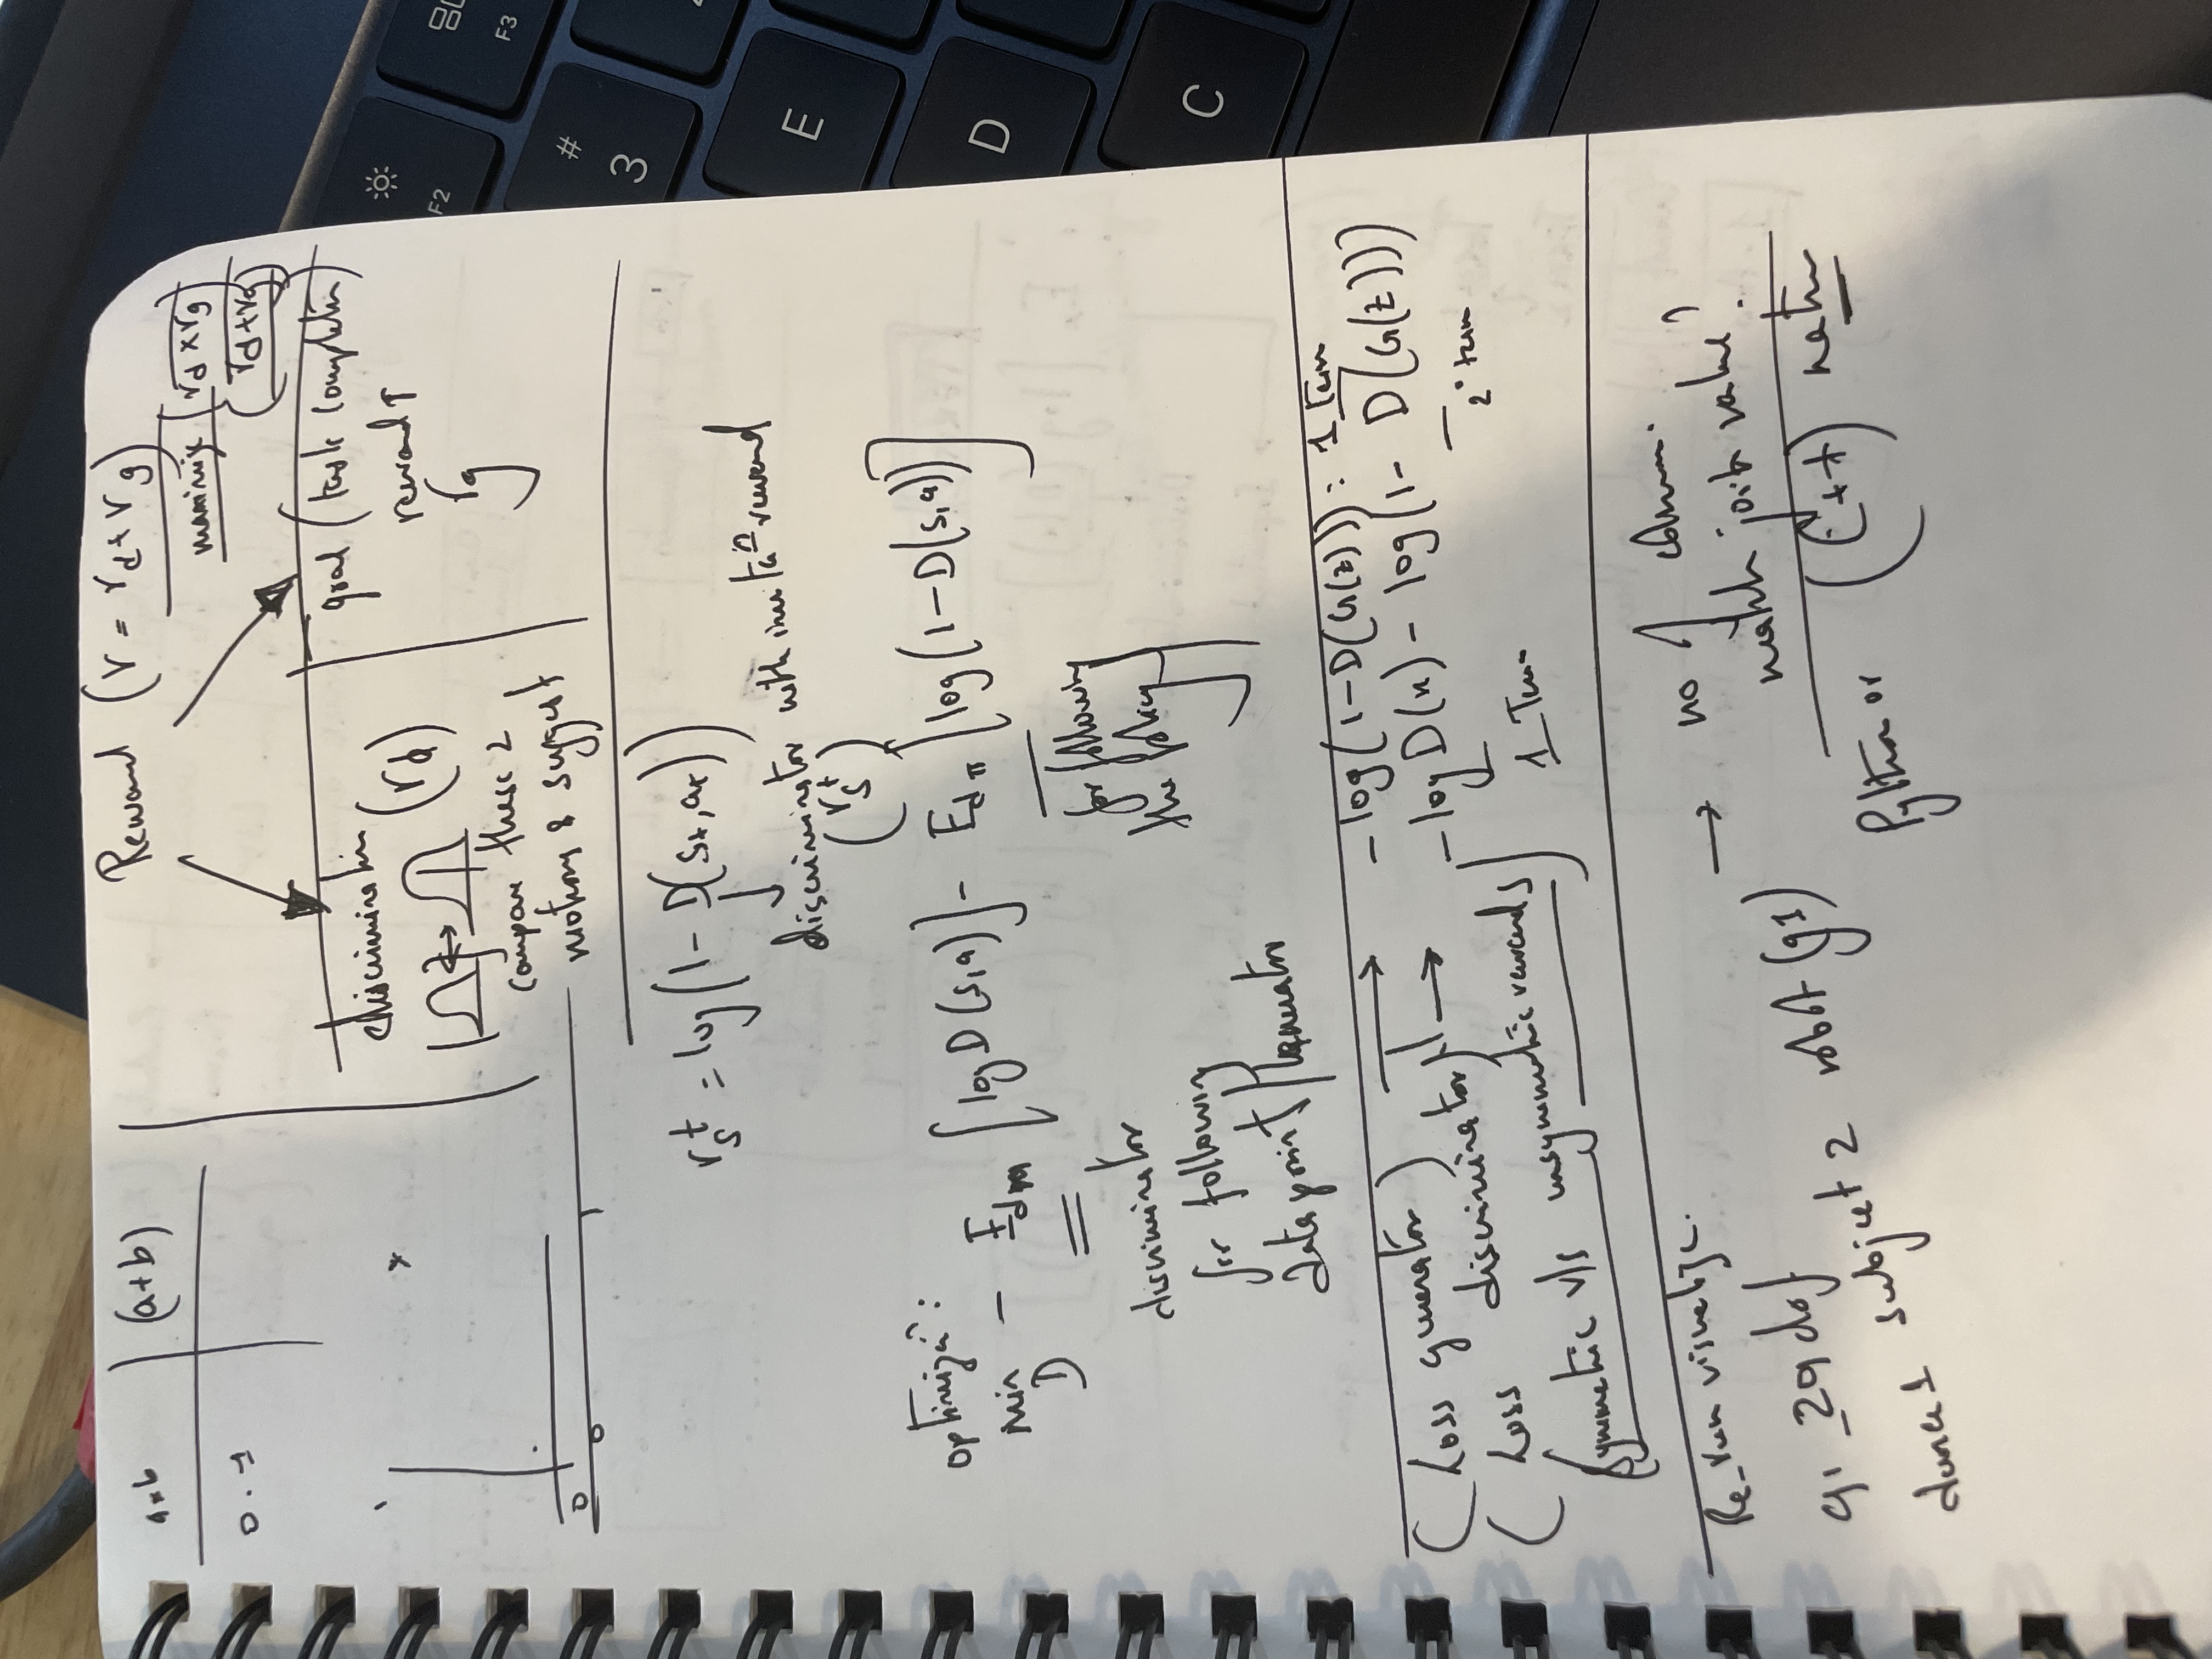 a×b (a+b)
0.1
0
0 1
Reward (r = r_d + r_g)
maximize (r_d × r_g)
(r_d + r_g)
discrimination
(r_d)
compare these 2
motions & suggest
goal (task completion)
reward ↑
r_g
r_s^t = log(1 - D(s_t, a_t))
discriminator with imita^n reward
(r_s^t)
optimiza^n:
min_D - E_dm [log D(s,a)] - E_dπ [log(1-D(s,a))]
discriminator
for following
datapoint/generator
for following
the policy
(Loss generator) → -log(1-D(G(z))) : 1 Term
(Loss discriminator) → -log D(x) - log(1- D(G(z)))
1 Term
2 term
(symmetric v/s unsymmetric rewards)
Re_run visualize.
g1_29dof
dance1 subject 2 robot (g1)
→ no of column.
match joint value?
Python or (C++)